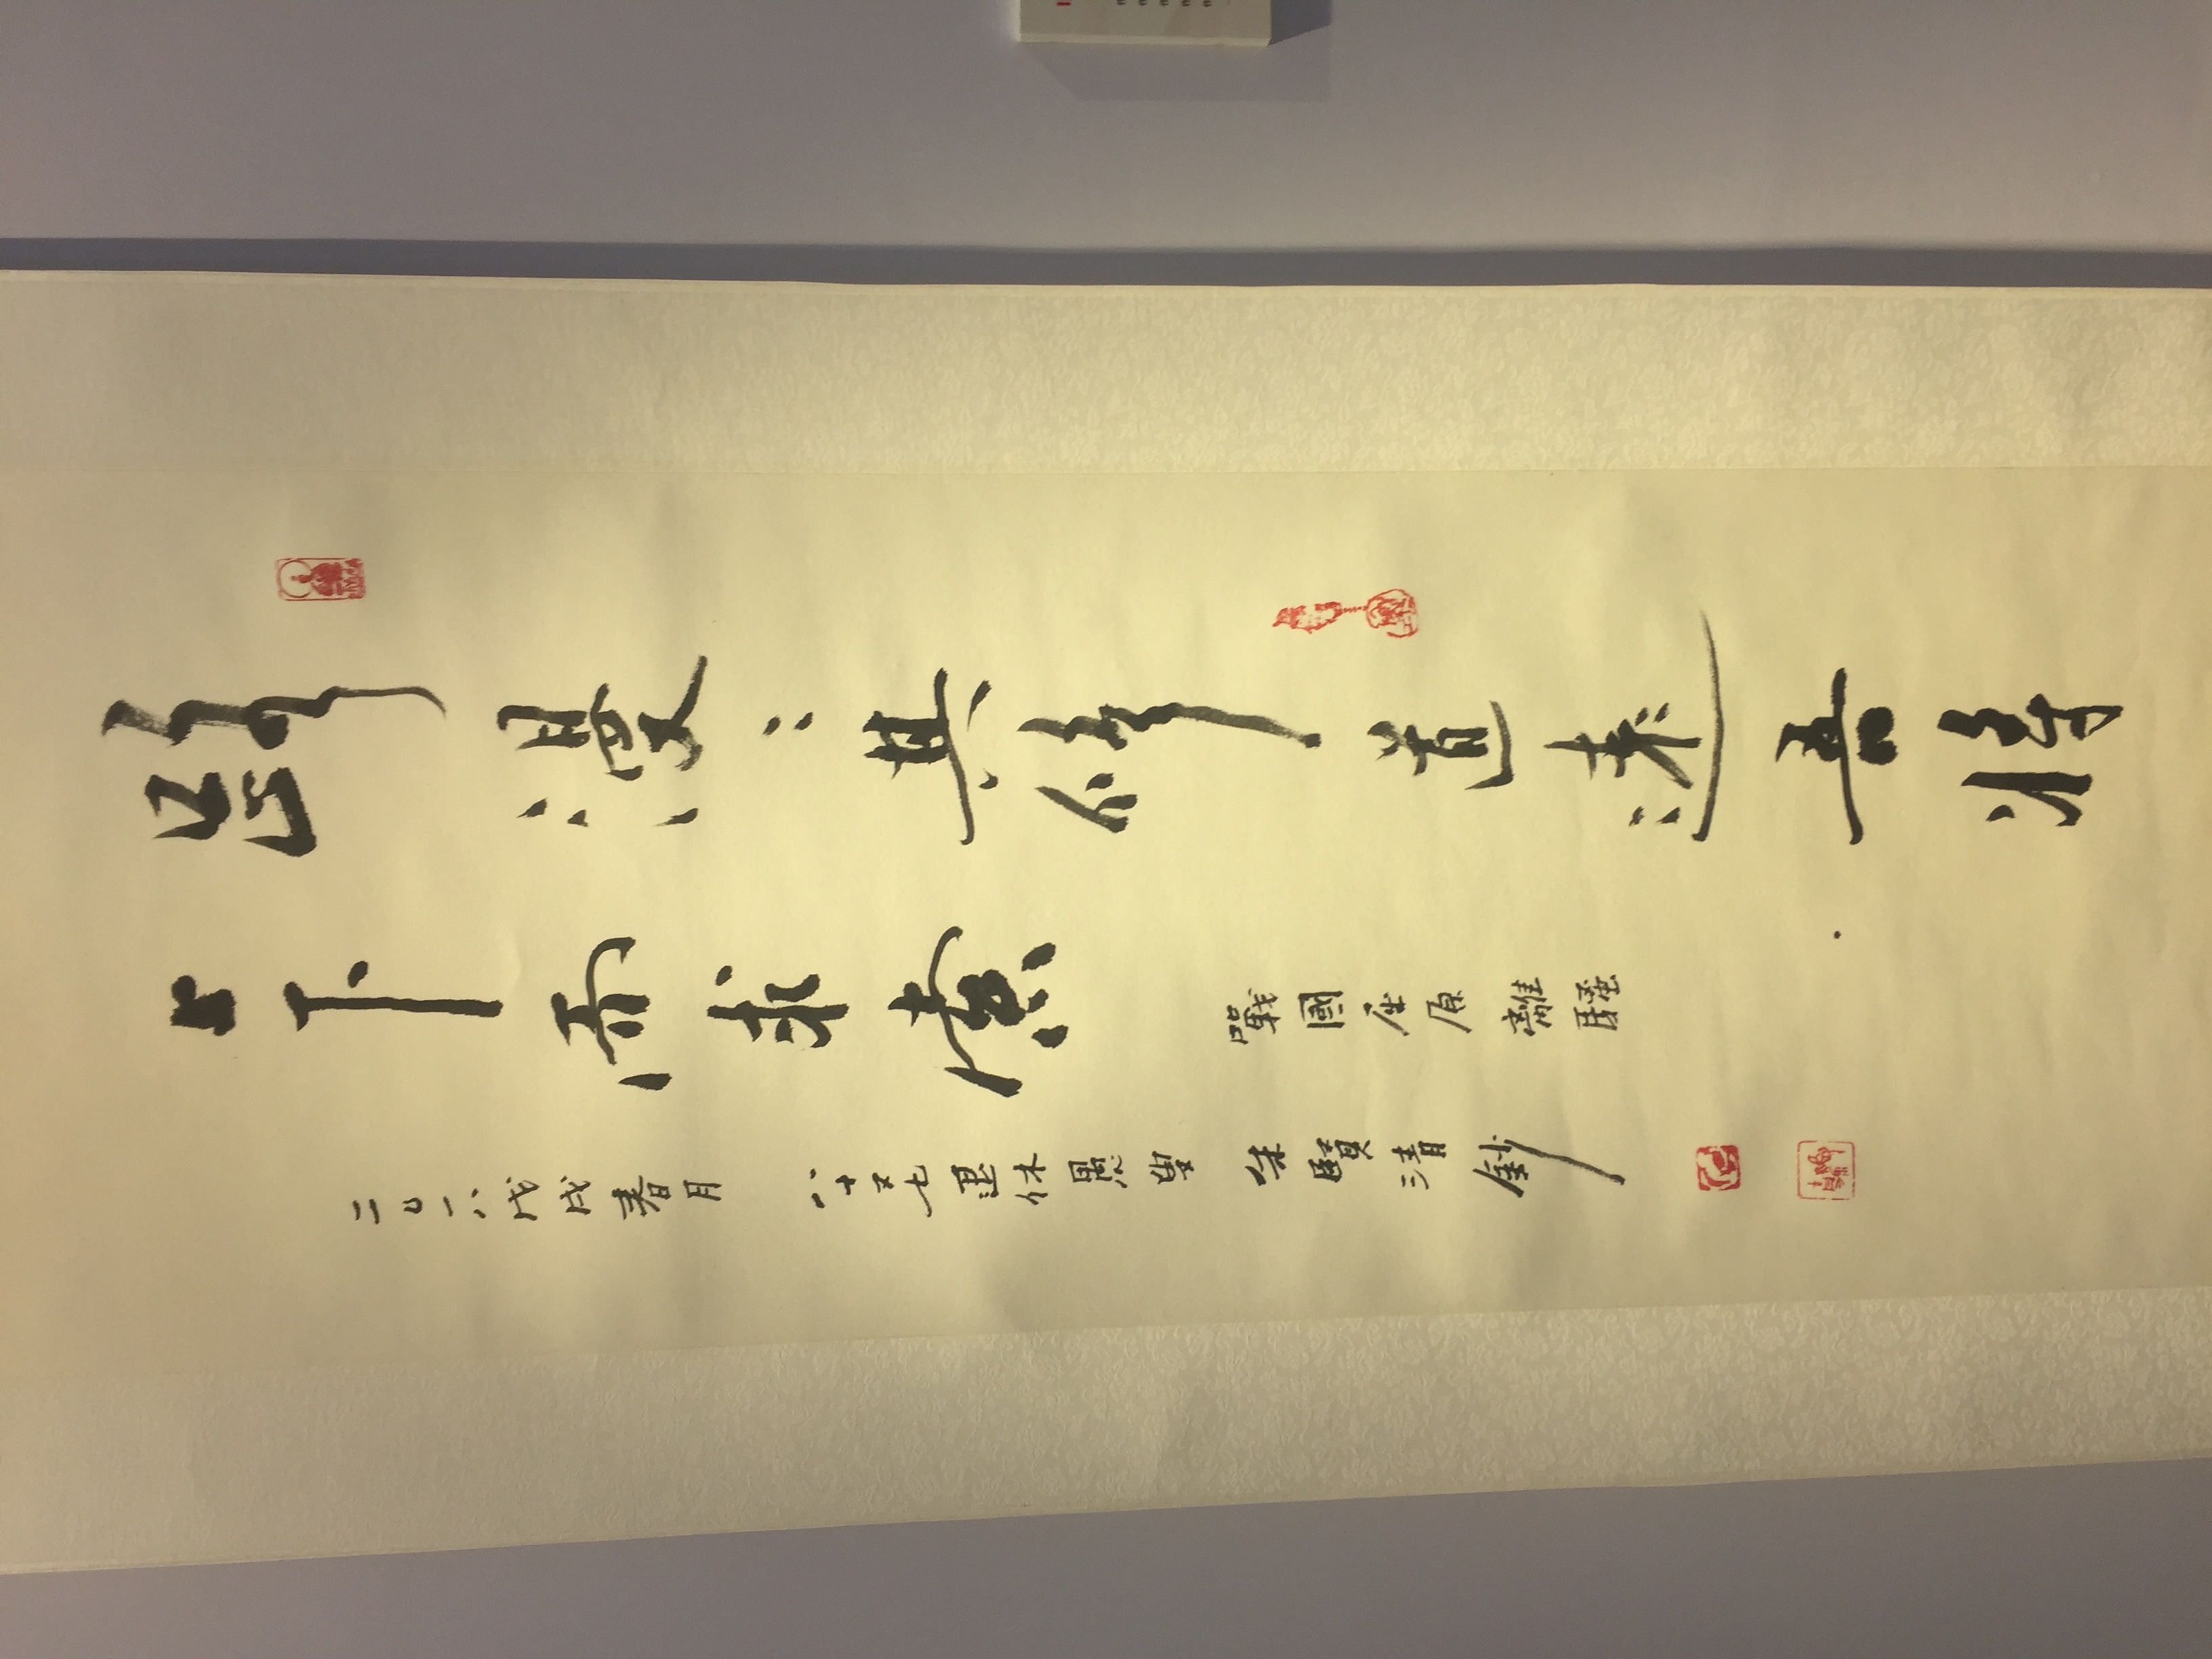 路漫〻其修道遠吾將
上下而求索 戰國屈原離騷
二〇一八戊戌春月 八十又七退休愚叟 朱賢清鈔